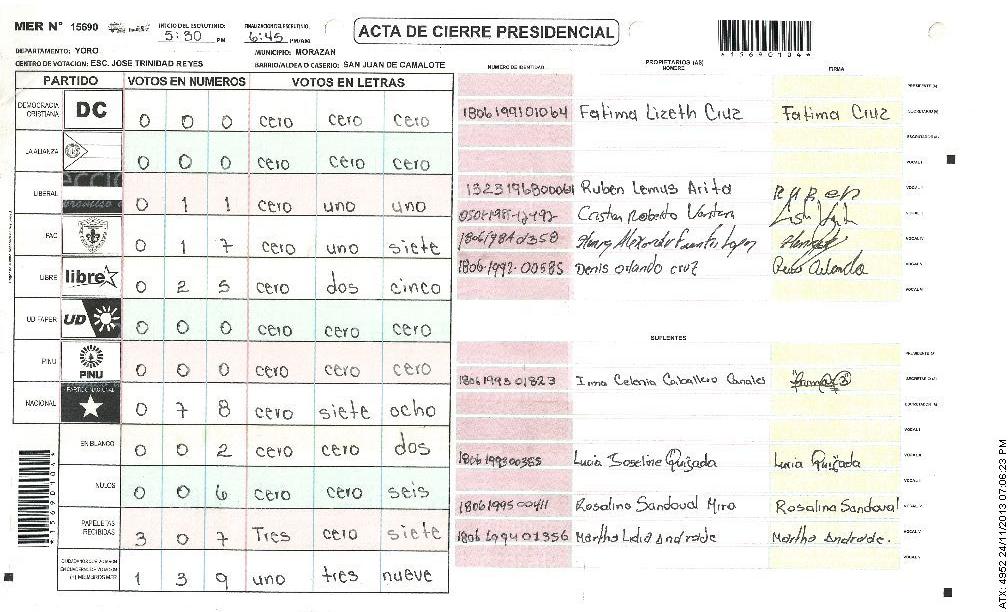 MER N° 15690 INICIO DEL ESCRUTINIO: 5:30 PM FINALIZACION DEL ESCRUTINIO: 6:45 PM/AM ACTA DE CIERRE PRESIDENCIAL
DEPARTAMENTO: YORO MUNICIPIO: MORAZAN
CENTRO DE VOTACION: ESC. JOSE TRINIDAD REYES BARRIO/ALDEA O CASERIO: SAN JUAN DE CAMALOTE
PARTIDO VOTOS EN NUMEROS VOTOS EN LETRAS
DEMOCRACIA CRISTIANA DC 0 0 0 cero cero cero
LA ALIANZA 0 0 0 cero cero cero
LIBERAL 0 1 1 cero uno uno
PAC 0 1 7 cero uno siete
LIBRE libre 0 2 5 cero dos cinco
UD FAPER UD 0 0 0 cero cero cero
PINU PINU 0 0 0 cero cero cero
NACIONAL 0 7 8 cero siete ocho
EN BLANCO 0 0 2 cero cero dos
NULOS 0 0 6 cero cero seis
PAPELETAS RECIBIDAS 3 0 7 Tres cero siete
1 3 9 uno tres nueve
NUMERO DE IDENTIDAD PROPIETARIOS (AS) NOMBRE FIRMA
1806199101064 Fatima Lizeth Cruz Fatima Cruz
1323196800061 Ruben Lemus Arita Ruben
Cristian Roberto
Denis orlando cruz
SUPLENTES
1806199301823 Irma Celenia Caballero Canales
1806199300355 Lucia Joseline Quijada Lucia Quijada
1806199500411 Rosalina Sandoval Mira Rosalina Sandoval
1806199401356 Martha Lidia Andrade Martha Andrade.
*15690104*
*15690104*
ATX: 4952 24/11/2013 07:06:23 PM